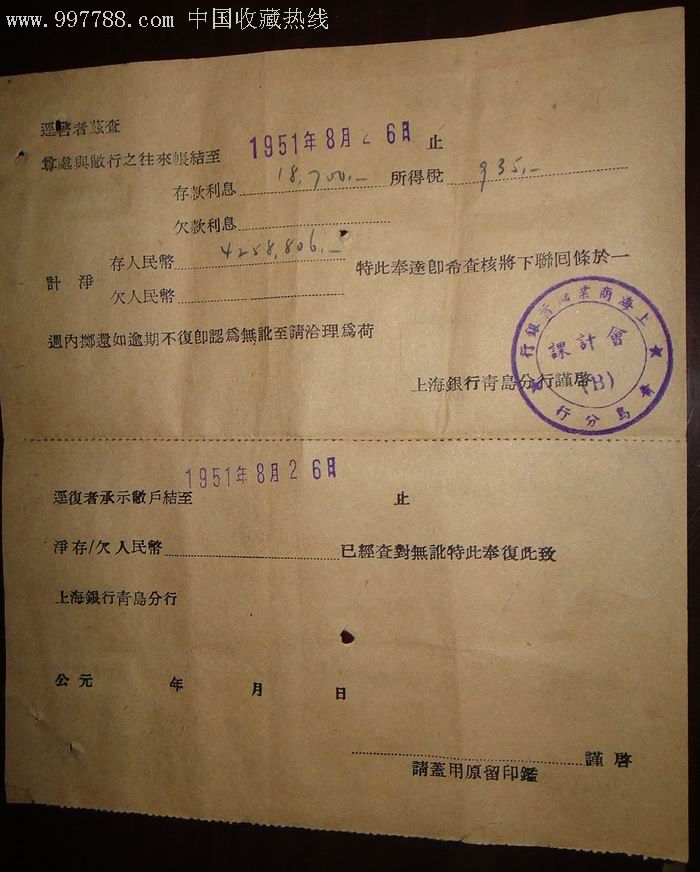 www.997788.com 中国收藏热线
逕啓者茲查
尊處與敝行之往來帳結至 1951年8月26日 止
存款利息 18,700.— 所得稅 935.—
欠款利息
計淨 存人民幣 4258,806.— 特此奉達卽希查核將下聯囘條於一
欠人民幣
週內擲還如逾期不復卽認爲無訛至請洽理爲荷
上海銀行靑島分行謹啓
上海商業儲蓄銀行
會計課
(B)
靑島分行
1951年8月26日
逕復者承示敝戶結至 止
淨存/欠人民幣 已經查對無訛特此奉復此致
上海銀行靑島分行
公元 年 月 日
謹啓
請蓋用原留印鑑